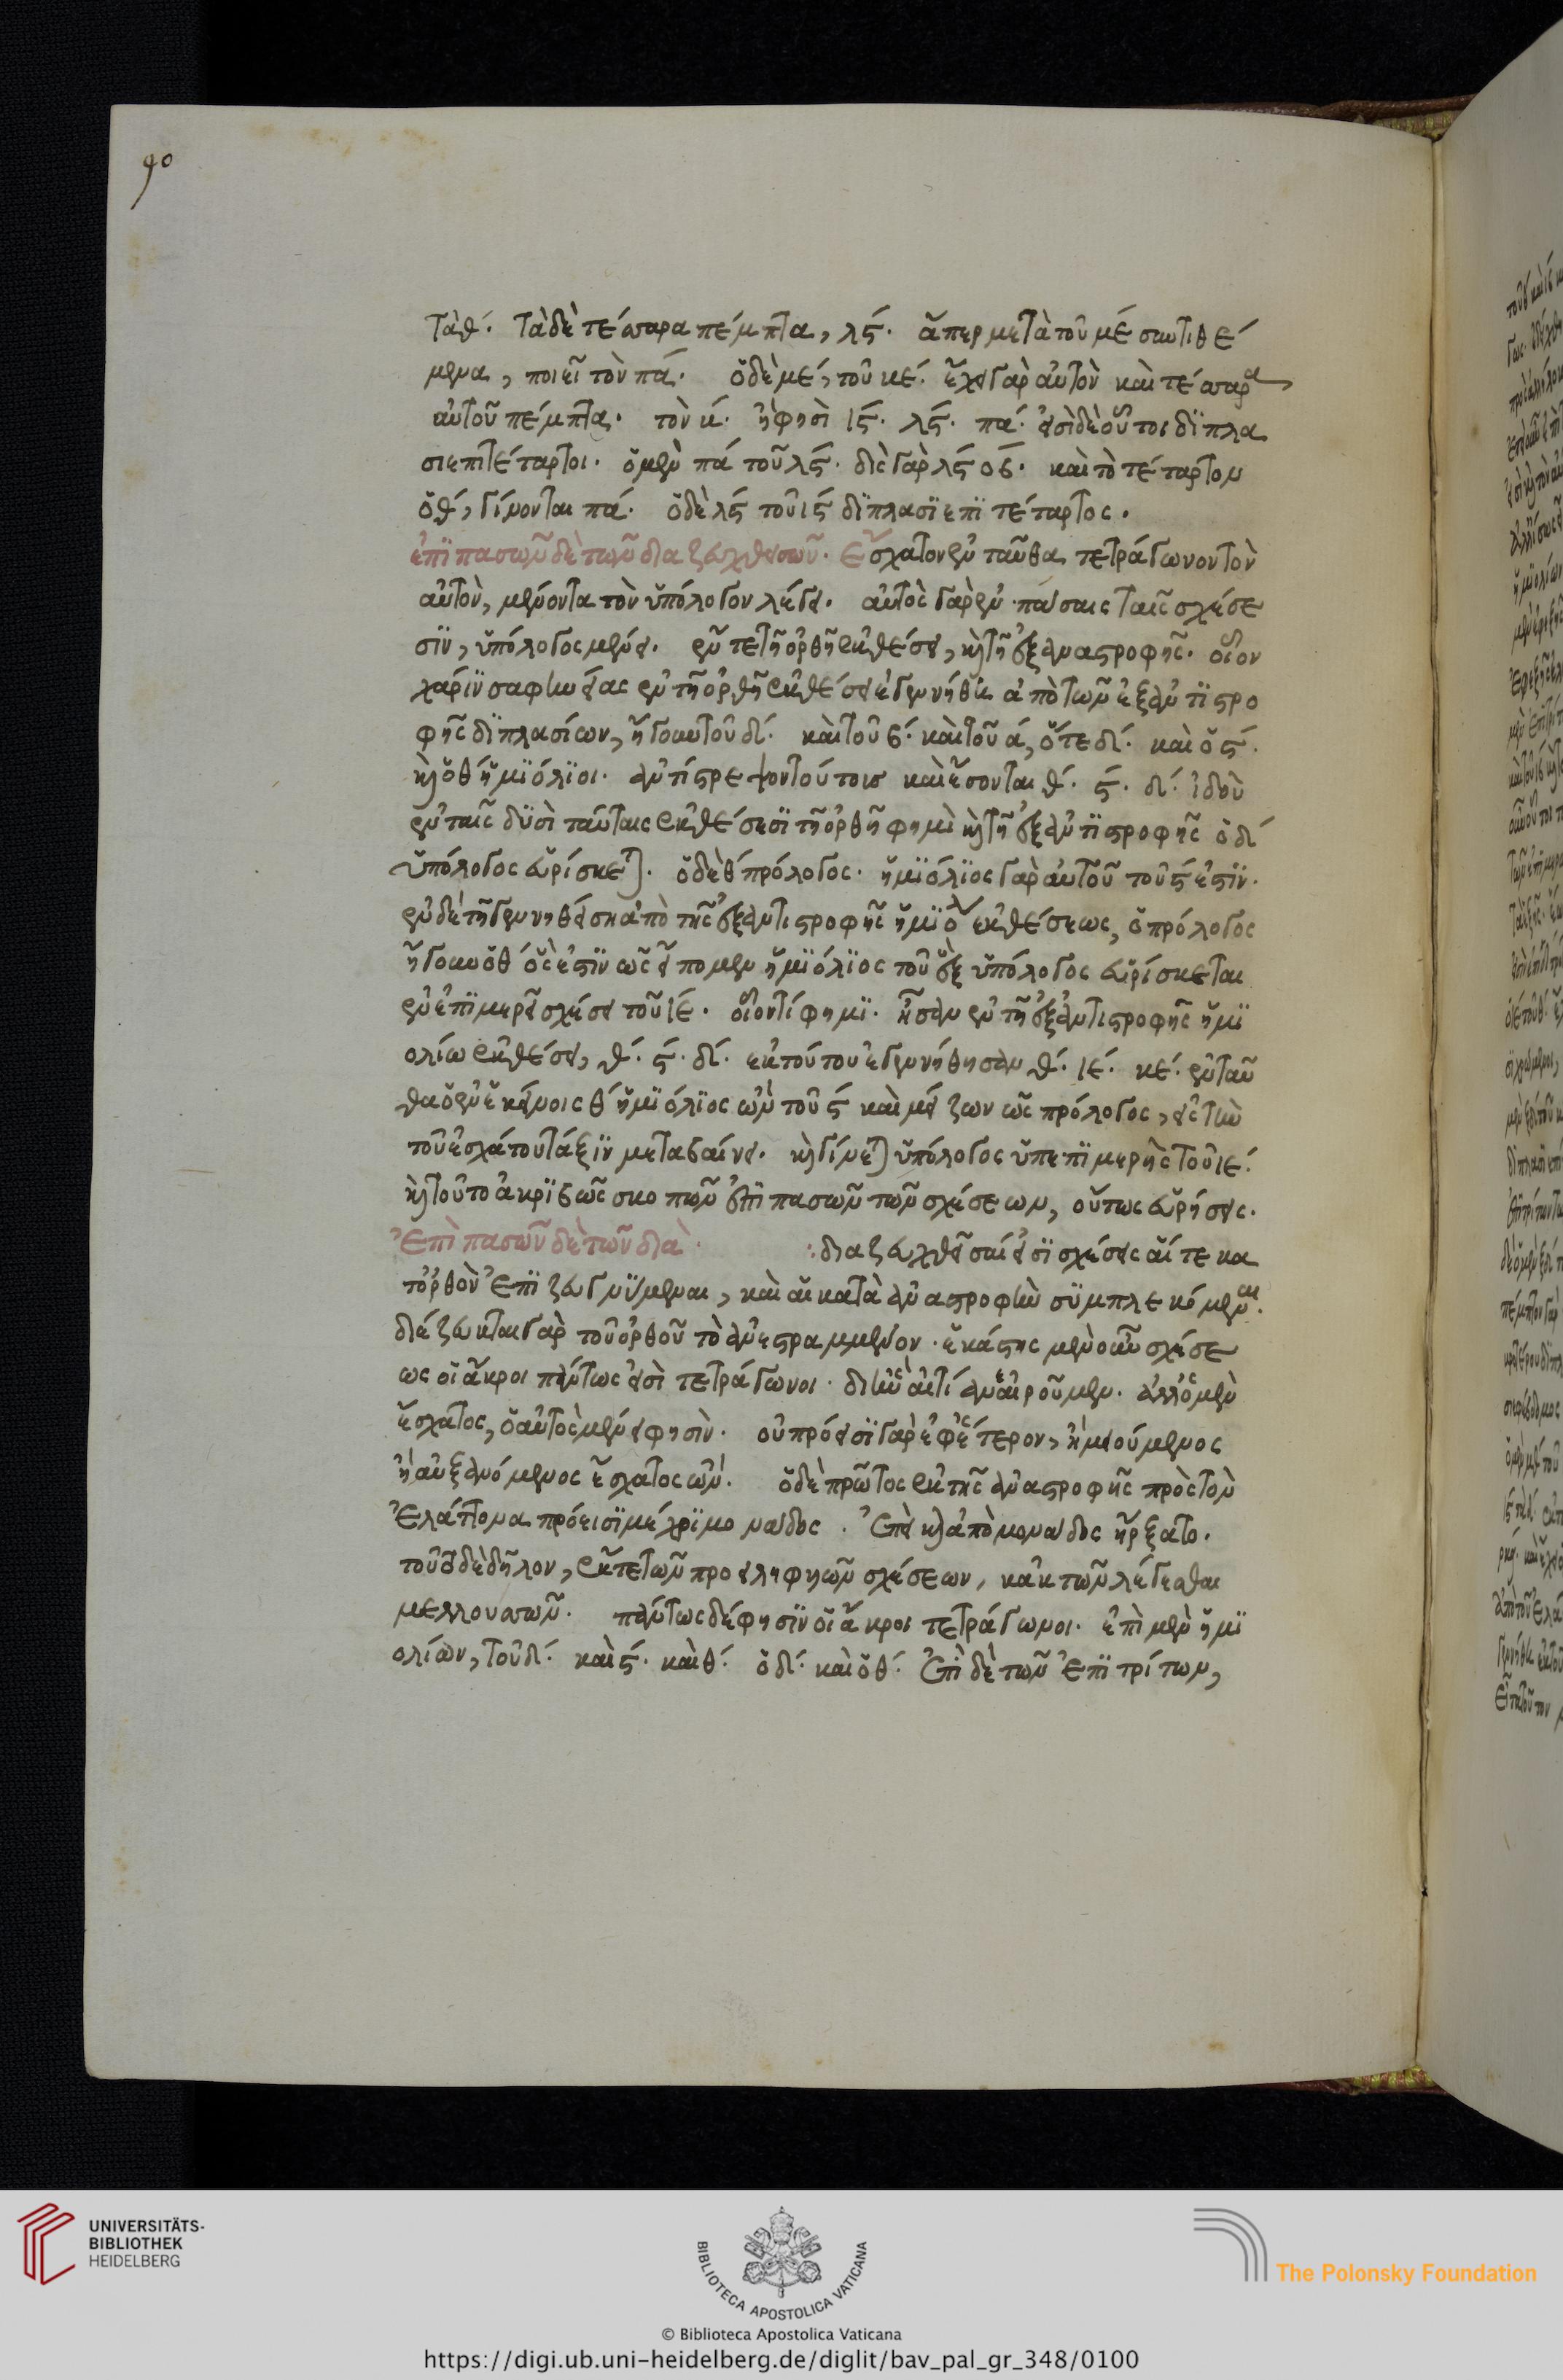 90
τὰ θ´. τὰ δὲ τέσσαρα πέμπτα, λς´. ἅπερ μετὰ τοῦ με´ συντιθέ
μενα, ποιεῖ τὸν πα´. ὁ δὲ με´, τοῦ κε´. ἔχει γὰρ αὐτὸν καὶ τέσσαρα
αὐτοῦ πέμπτα. τὸν κ´. ἢ φησὶ ις´. λς´. πα´. εἰσὶ δὲ οὗτοι διπλα
σιεπιτέταρτοι. ὁ μὲν πα´ τοῦ λς´. δὶς γὰρ λς´ οβ´. καὶ τὸ τέταρτον
ὁ θ´, γίνονται πα´. ὁ δὲ λς´ τοῦ ις´ διπλασιεπιτέταρτος.
ἐπὶ πασῶν δὲ τῶν διαζευχθεισῶν. ἔσχατον ἐνταῦθα τετράγωνον τὸν
αὐτὸν, μένοντα τὸν ὑπόλογον λέγει. αὐτὸς γὰρ ἐν πάσαις ταῖς σχέσε
σιν, ὑπόλογος μένει. ἔν τε τῇ ὀρθῇ ἐκθέσει, καὶ τῇ ἐξ ἀναστροφῆς. οἷον
χάριν σαφηνείας ἐν τῇ ὀρθῇ ἐκθέσει ἐγεννήθη ἀπὸ τῶν ἐξ ἀντιστρο
φῆς διπλασίων, ἤγουν τοῦ δ´. καὶ τοῦ β´. καὶ τοῦ α´, ὅ τε δ´. καὶ ὁ ς´.
καὶ ὁ θ´ ἡμιόλιοι. ἀντίστρεψον τούτους καὶ ἔσονται θ´. ς´. δ´. ἰδοὺ
ἐν ταῖς δυσὶ ταύταις ἐκθέσεσι τῇ ὀρθῇ φημὶ καὶ τῇ ἐξ ἀντιστροφῆς ὁ δ´
ὑπόλογος εὑρίσκεται. ὁ δὲ θ´ πρόλογος. ἡμιόλιος γὰρ αὐτοῦ τοῦ ς´ ἐστίν.
ἐν δὲ τῇ γεννηθείσῃ ἀπὸ τῆς ἐξ ἀντιστροφῆς ἡμιολ ἐκθέσεως, ὁ πρόλογος
ἤγουν ὁ θ´ ὅς ἐστιν ὡς εἴπομεν ἡμιόλιος τοῦ ἓξ ὑπόλογος εὑρίσκεται
ἐν ἐπιμερεῖ σχέσει τοῦ ιε´. οἷόν τί φημι. ἦσαν ἐν τῇ ἐξ ἀντιστροφῆς ἡμι
ολίω ἐκθέσει, θ´. ς´. δ´. ἐκ τούτου ἐγεννήθησαν θ´. ιε´. κε´. ἐνταῦ
θα ὁ ἐν ἐκείνοις θ´ ἡμιόλιος ὢν τοῦ ς´ καὶ μείζων ὡς πρόλογος, εἰς τὴν
τοῦ ἐσχάτου τάξιν μεταβαίνει. καὶ γίνεται ὑπόλογος ὑπεπιμερὴς τοῦ ιε´.
καὶ τοῦτο ἀκριβῶς σκοπῶν ἐπὶ πασῶν τῶν σχέσεων, οὕτως εὑρήσεις.
Ἐπὶ πασῶν δὲ τῶν δια. :διαζευχθεῖσαί εἰσι σχέσεις αἵ τε κα
τ' ὀρθὸν ἐπιζευγνύμεναι, καὶ αἱ κατὰ ἀναστροφὴν συμπλεκόμεναι.
διέζευκται γὰρ τοῦ ὀρθοῦ τὸ ἀνεστραμμένον. ἑκάστης μὲν οὖν σχέσε
ως οἱ ἄκροι πάντως εἰσὶ τετράγωνοι. ἀλλ' ὁ μὲν
ἔσχατος, ὁ αὐτὸς μένει φησὶν. οὐ πρόεισι γὰρ ἐφ' ἕτερον, ἢ μειούμενος
ἢ αὐξανόμενος ἔσχατος ὤν. ὁ δὲ πρῶτος ἐκ τῆς ἀναστροφῆς πρὸς τὸν
ἐλάττονα πρόεισι μέχρι μονάδος. ἐπεὶ καὶ ἀπὸ μονάδος ἤρξατο.
δὲ δῆλον, ἔκ τε τῶν προειλημένων σχέσεων, κἀκ τῶν λέγεσθαι
μελλουσῶν. πάντως δέ φησιν οἱ ἄκροι τετράγωνοι. ἐπὶ μὲν ἡμι
ολίων, τοῦ δ´. καὶ ς´. καὶ θ´. ὁ δ´. καὶ ὁ θ´. ἐπὶ δὲ τῶν ἐπιτρίτων,
UNIVERSITÄTS-
BIBLIOTHEK
HEIDELBERG
BIBLIOTECA APOSTOLICA VATICANA
The Polonsky Foundation
© Biblioteca Apostolica Vaticana
https://digi.ub.uni-heidelberg.de/diglit/bav_pal_gr_348/0100